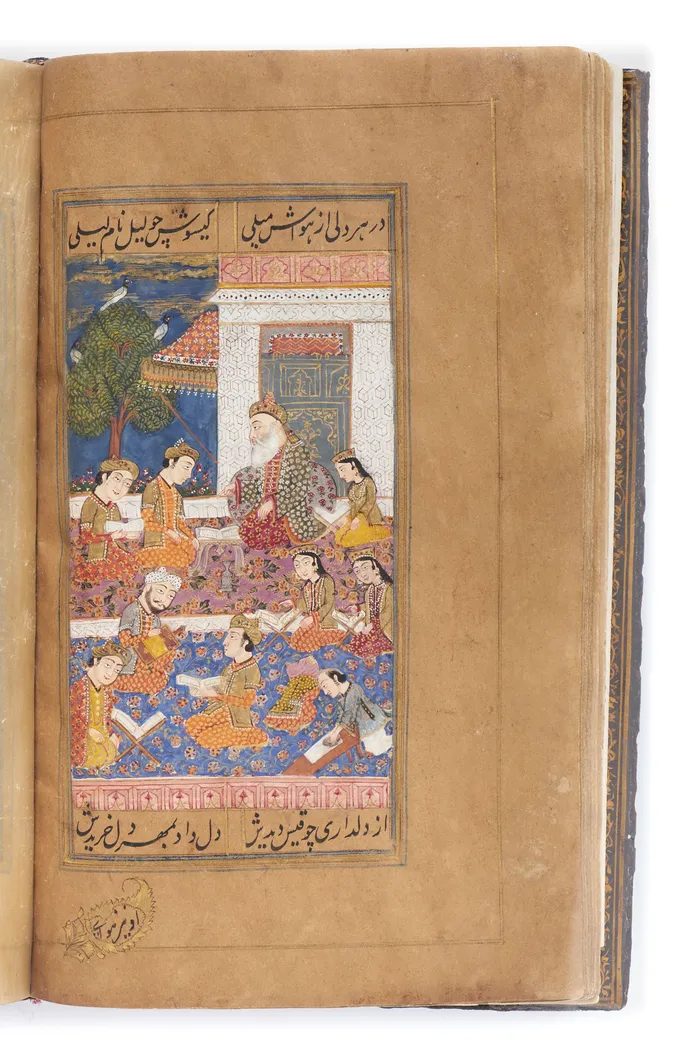 در هر دلی از هواش میلی گیسوش چو لیل نام لیلی
از دلداری چو قیس دیدش دل داد بمهر دل خریدش
او نیز هوای